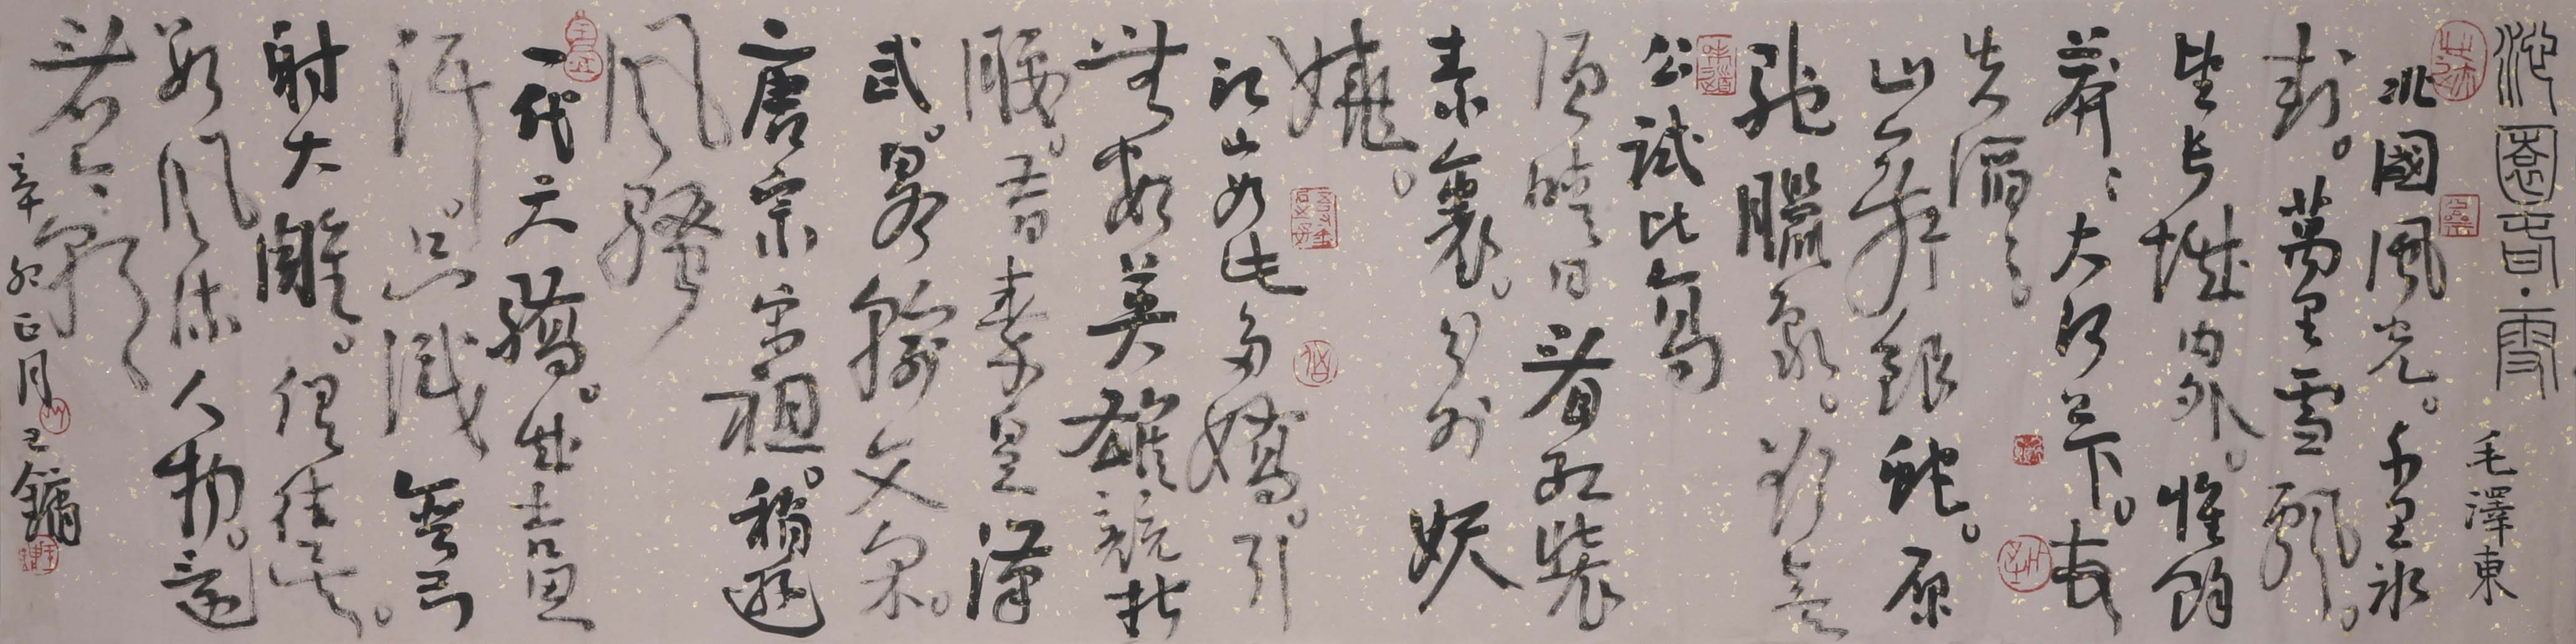 沁園春·雪
毛澤東
北國風光。千里冰
封。萬里雪飄。
望長城內外。惟餘
莽々大河上下。頓
失滔々。
山舞銀蛇。原
馳臘象。欲與天
公試比高
須晴日看紅裝
素裹。分外妖
嬈。
江山如此多嬌。引
無數英雄競折
腰。昔秦皇漢
武。略輸文采。
唐宗宋祖。稍遜
風騷
一代天驕。成吉思
汗。只識彎弓
射大雕。俱往矣。
數風流人物。還
看今朝
辛卯正月